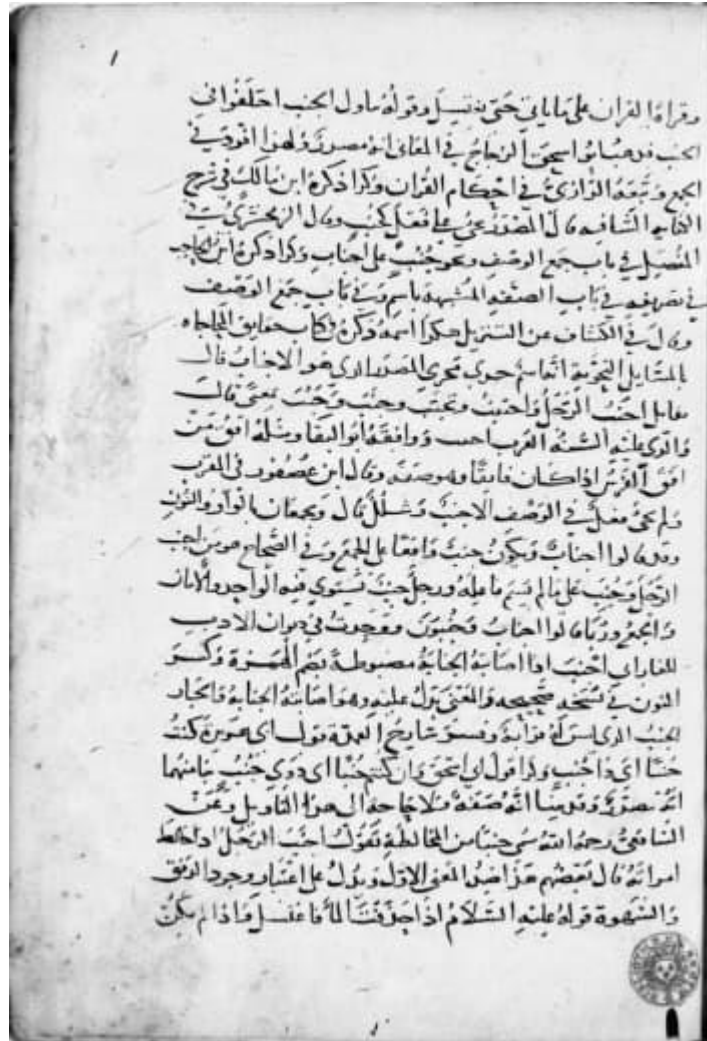 وقراءة القران على ما ياتي حتى يغتسل وقوله تاول الجنب اختلفوا في
الجنب فذهب ابو اسحق الزجاج في المعاني انه مصدر ولهذا افرد في
الجمع وتبعه الرازي في احكام القران وكذا ذكره ابن مالك في شرح
الكافيه الشافيه قال المصدر يجئ على فعل كجنب وقال الزمخشري في
المفصل في باب جمع الوصف ونحو جنب على اجناب وكذا ذكره ابن الحاجب
في تصريفه في باب الصفه المشبهة باسم وفي باب جمع الوصف
وقال في الكشاف عن التنزيل هكذا اسمه ذكره في كتاب حقايق المحاجاه
بالمسايل النحويه انه اسم جرى مجرى المصدر الذي هو الاجناب قال
يقال اجنب الرجل واجتنب وتجنب وجنب وجنب بمعنى قال
والذي عليه السنة العرب اجنب ووافقه ابو البقا ومثله افق من
افق الفرس اذا كان فايقا وهو صفه وقال ابن عصفور في المقرب
ولم يجئ فعل في الوصف الا جنب وشلل قال ويجمعان بالواو والنون
وقد قالوا اجناب ويكون جنب واقعا على الجمع وفي الصحاح هو من اجنب
الرجل وجنب على ما لم يسم فاعله ورجل جنب يستوي فيه الواحد والاثنان
والجمع وربما قالوا اجناب وجنبون ووجدت في ديوان الادب
للفارابي اجنب اذا اصابته الجنابة مضبوطة بضم الهمزة وكسر
النون في نسخه صحيحه والمعنى يدل عليه وهو اصابته الجنابة والجار
الجنب الذي ليس له قرابة وفسر شارح العمدة قول ابي هريرة كنت
جنبا اي ذا جنب وكذا قول ابي اسحق وان كنتم جنبا اي ذوي جنب بناء منهما
انه مصدر وقد بينا انه صفة فلا حاجة الى هذا التاويل وعن
الشافعي رحمه الله سمي جنبا من المخالطة تقول اجنب الرجل اذا خالط
امراته قال بعضهم هذا ضد المعنى الاول ويدل على اعتبار وجود الدفق
والشهوة قوله عليه السلام اذا حذفت الما فاغتسل واذا لم يكن